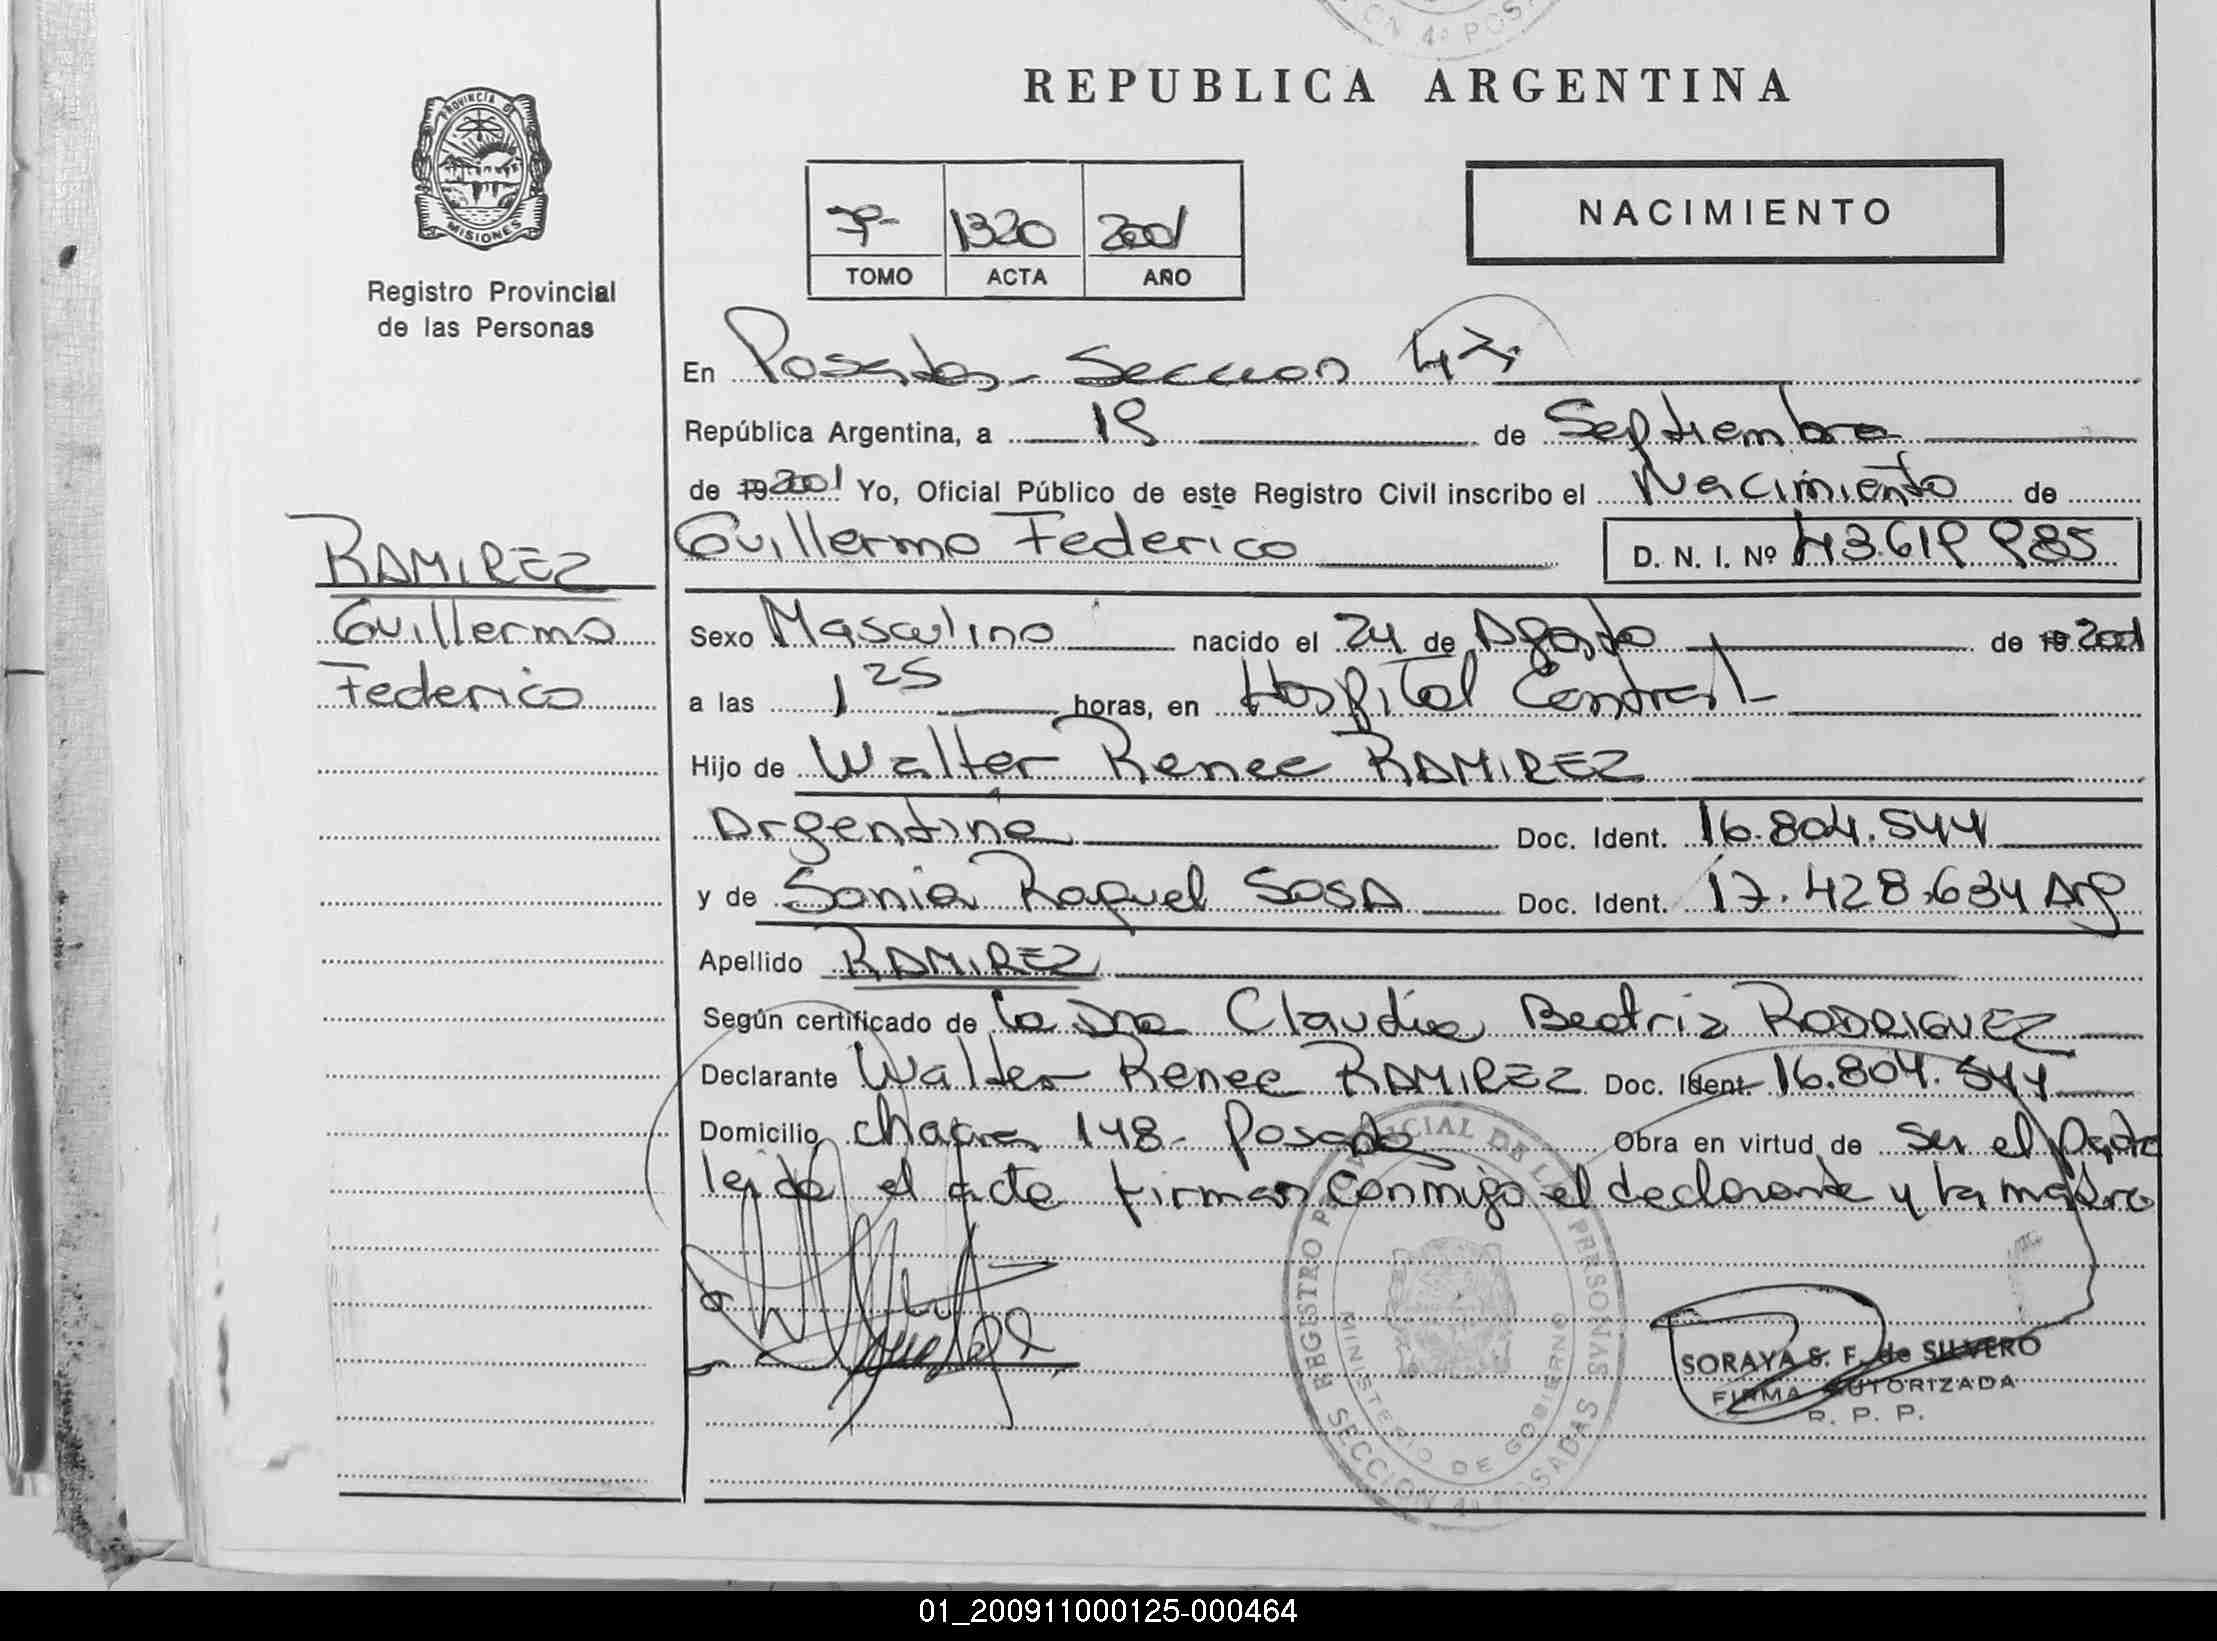 CN 4ª POS
REPUBLICA ARGENTINA
PROVINCIA DE
MISIONES
Registro Provincial
de las Personas
1320 2001
TOMO ACTA AÑO
NACIMIENTO
En Posadas - Seccion 4ª
República Argentina, a 19 de Septiembre
de 19 2001 Yo, Oficial Público de este Registro Civil inscribo el Nacimiento de
Guillermo Federico D. N. I. Nº 43.619.985
RAMIREZ
Guillermo
Federico
Sexo Masculino nacido el 24 de Agosto de 19 2001
a las 1 25 horas, en Hospital Central
Hijo de Walter Renee RAMIREZ
Argentina Doc. Ident. 16.804.544
y de Sonia Raquel SOSA Doc. Ident. 17.428.634 Arg
Apellido RAMIREZ
Según certificado de la Dra Claudia Beatriz RODRIGUEZ
Declarante Walter Renee RAMIREZ Doc. Ident. 16.804.544
Domicilio chacra 148 - Posadas Obra en virtud de ser el Padre
leida el acta firman conmigo el declarante y la madre
REGISTRO PROVINCIAL DE LAS PERSONAS
MINISTERIO DE GOBIERNO
SECCION 4ª POSADAS
SORAYA S. F. de SILVERO
FIRMA AUTORIZADA
R. P. P.
01_200911000125-000464